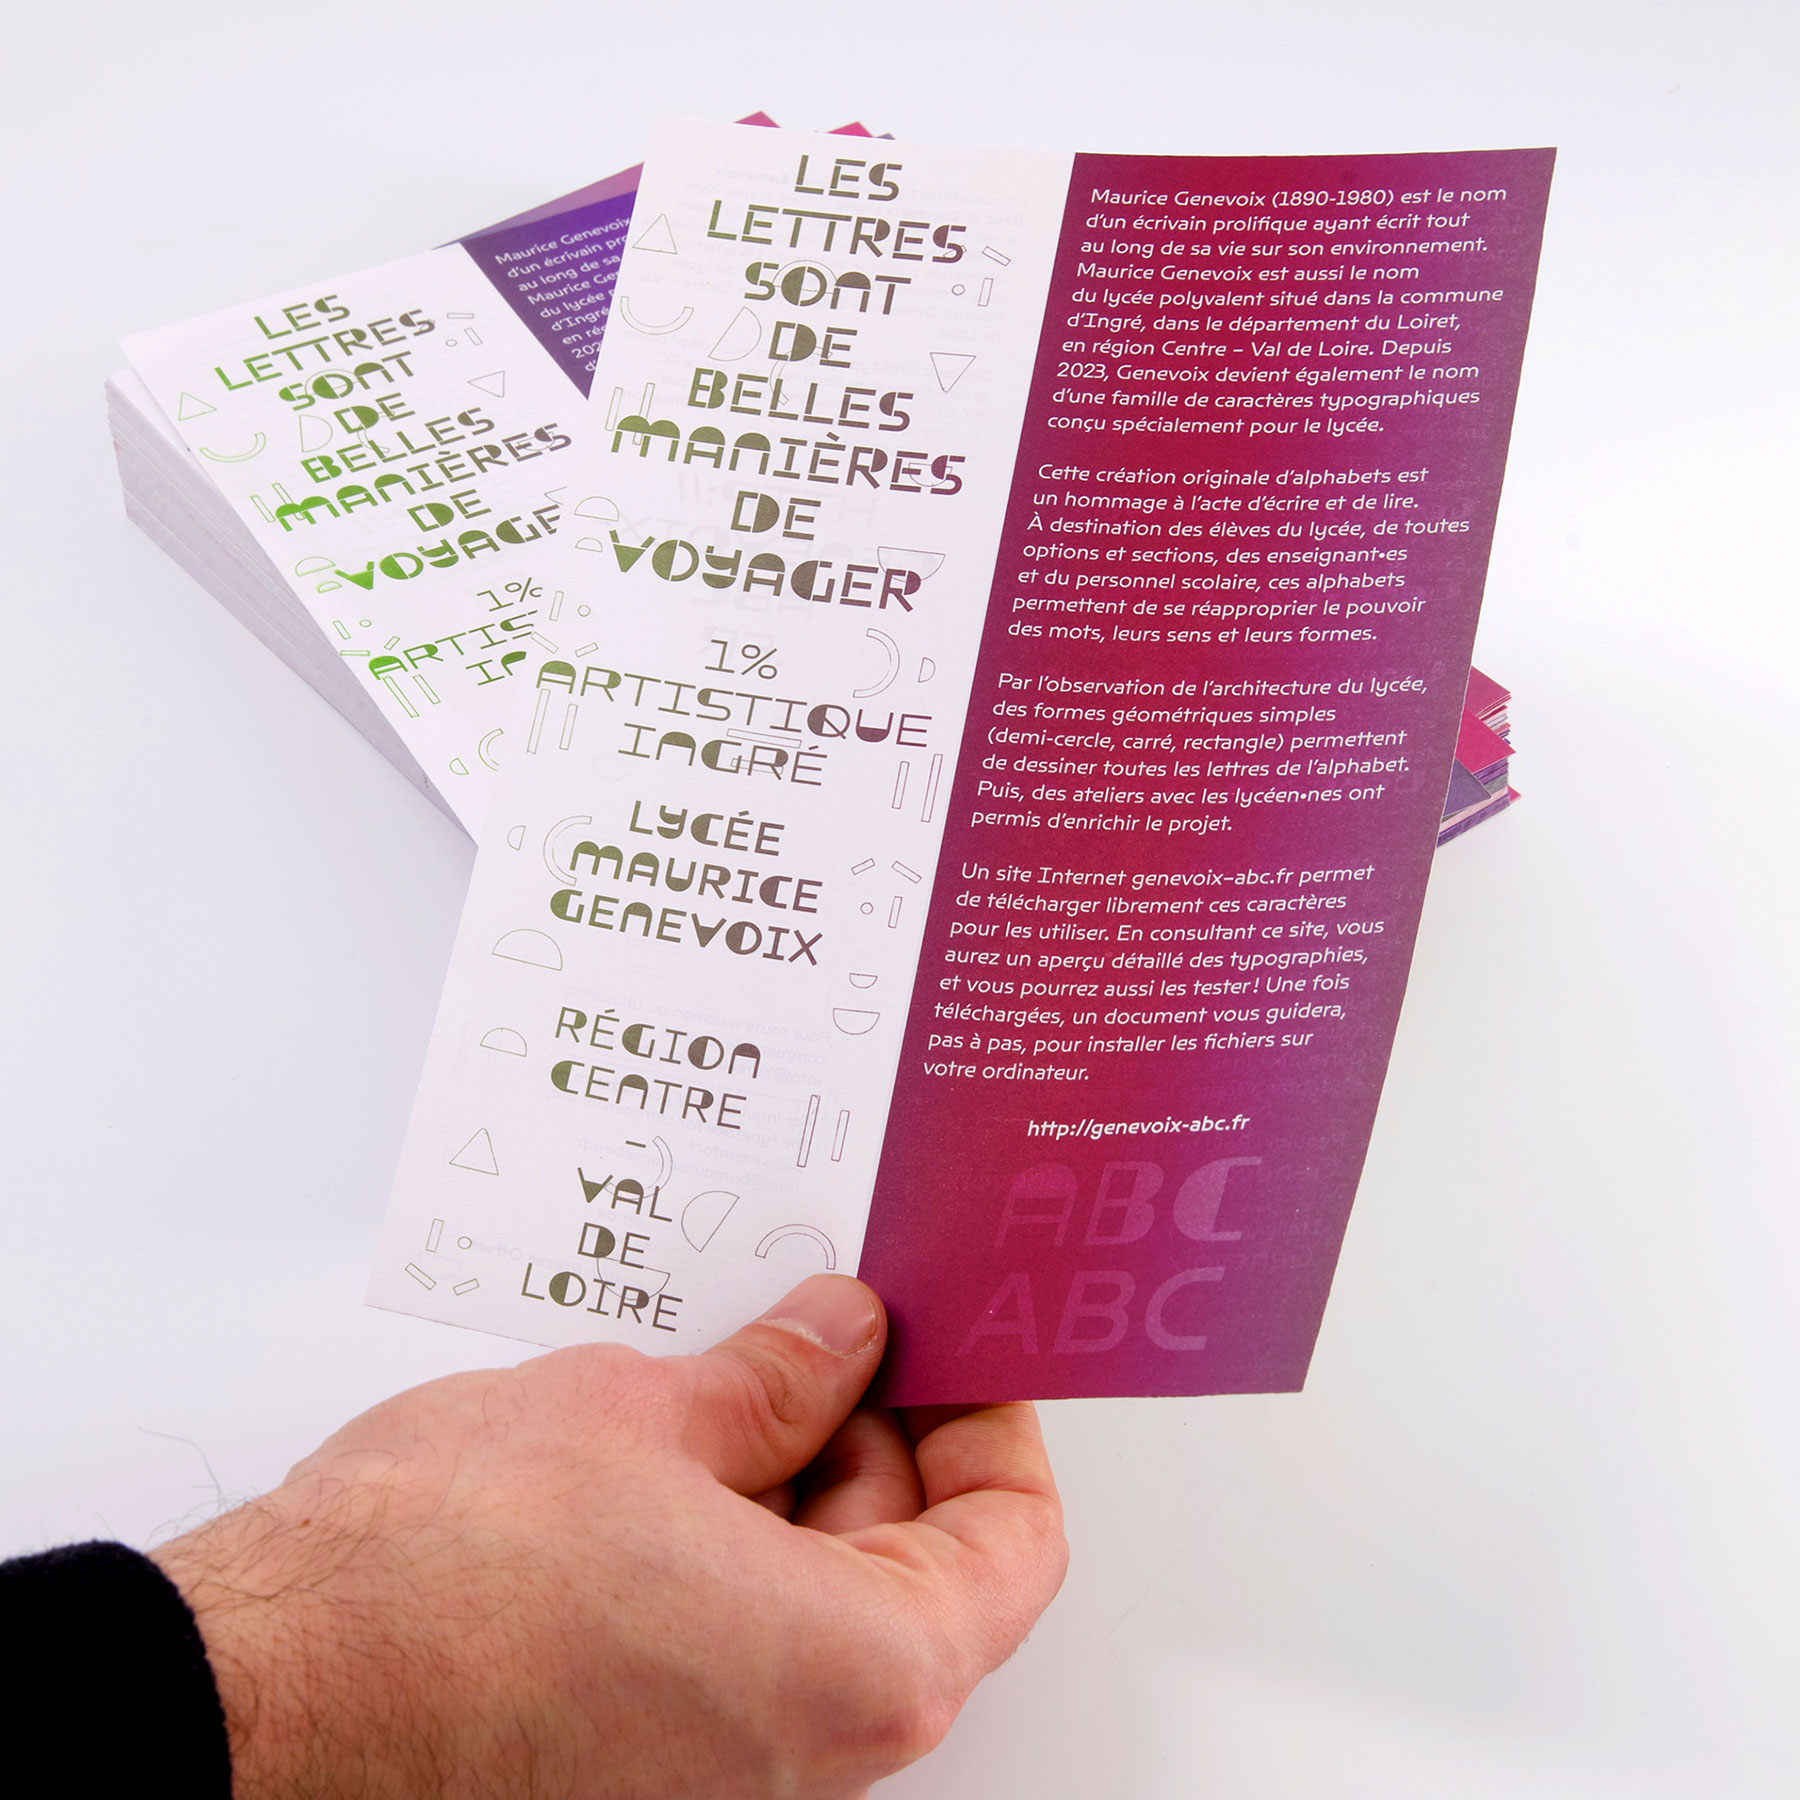 LES
LETTRES
SONT
DE
BELLES
MANIÈRES
DE
VOYAGER
1%
ARTISTIQUE
INGRÉ
LYCÉE
MAURICE
GENEVOIX
RÉGION
CENTRE
–
VAL
DE
LOIRE
Maurice Genevoix (1890-1980) est le nom
d'un écrivain prolifique ayant écrit tout
au long de sa vie sur son environnement.
Maurice Genevoix est aussi le nom
du lycée polyvalent situé dans la commune
d'Ingré, dans le département du Loiret,
en région Centre – Val de Loire. Depuis
2023, Genevoix devient également le nom
d'une famille de caractères typographiques
conçu spécialement pour le lycée.
Cette création originale d'alphabets est
un hommage à l'acte d'écrire et de lire.
À destination des élèves du lycée, de toutes
options et sections, des enseignant•es
et du personnel scolaire, ces alphabets
permettent de se réapproprier le pouvoir
des mots, leurs sens et leurs formes.
Par l'observation de l'architecture du lycée,
des formes géométriques simples
(demi-cercle, carré, rectangle) permettent
de dessiner toutes les lettres de l'alphabet.
Puis, des ateliers avec les lycéen•nes ont
permis d'enrichir le projet.
Un site Internet genevoix-abc.fr permet
de télécharger librement ces caractères
pour les utiliser. En consultant ce site, vous
aurez un aperçu détaillé des typographies,
et vous pourrez aussi les tester ! Une fois
téléchargées, un document vous guidera,
pas à pas, pour installer les fichiers sur
votre ordinateur.
http://genevoix-abc.fr
ABC
ABC
LES
LETTRES
SONT
DE
BELLES
MANIÈRES
DE
VOYAGE
1%
ARTIS
Maurice Genevoix
d'un écrivain
au long de sa
Maurice
du lycée
d'Ingré